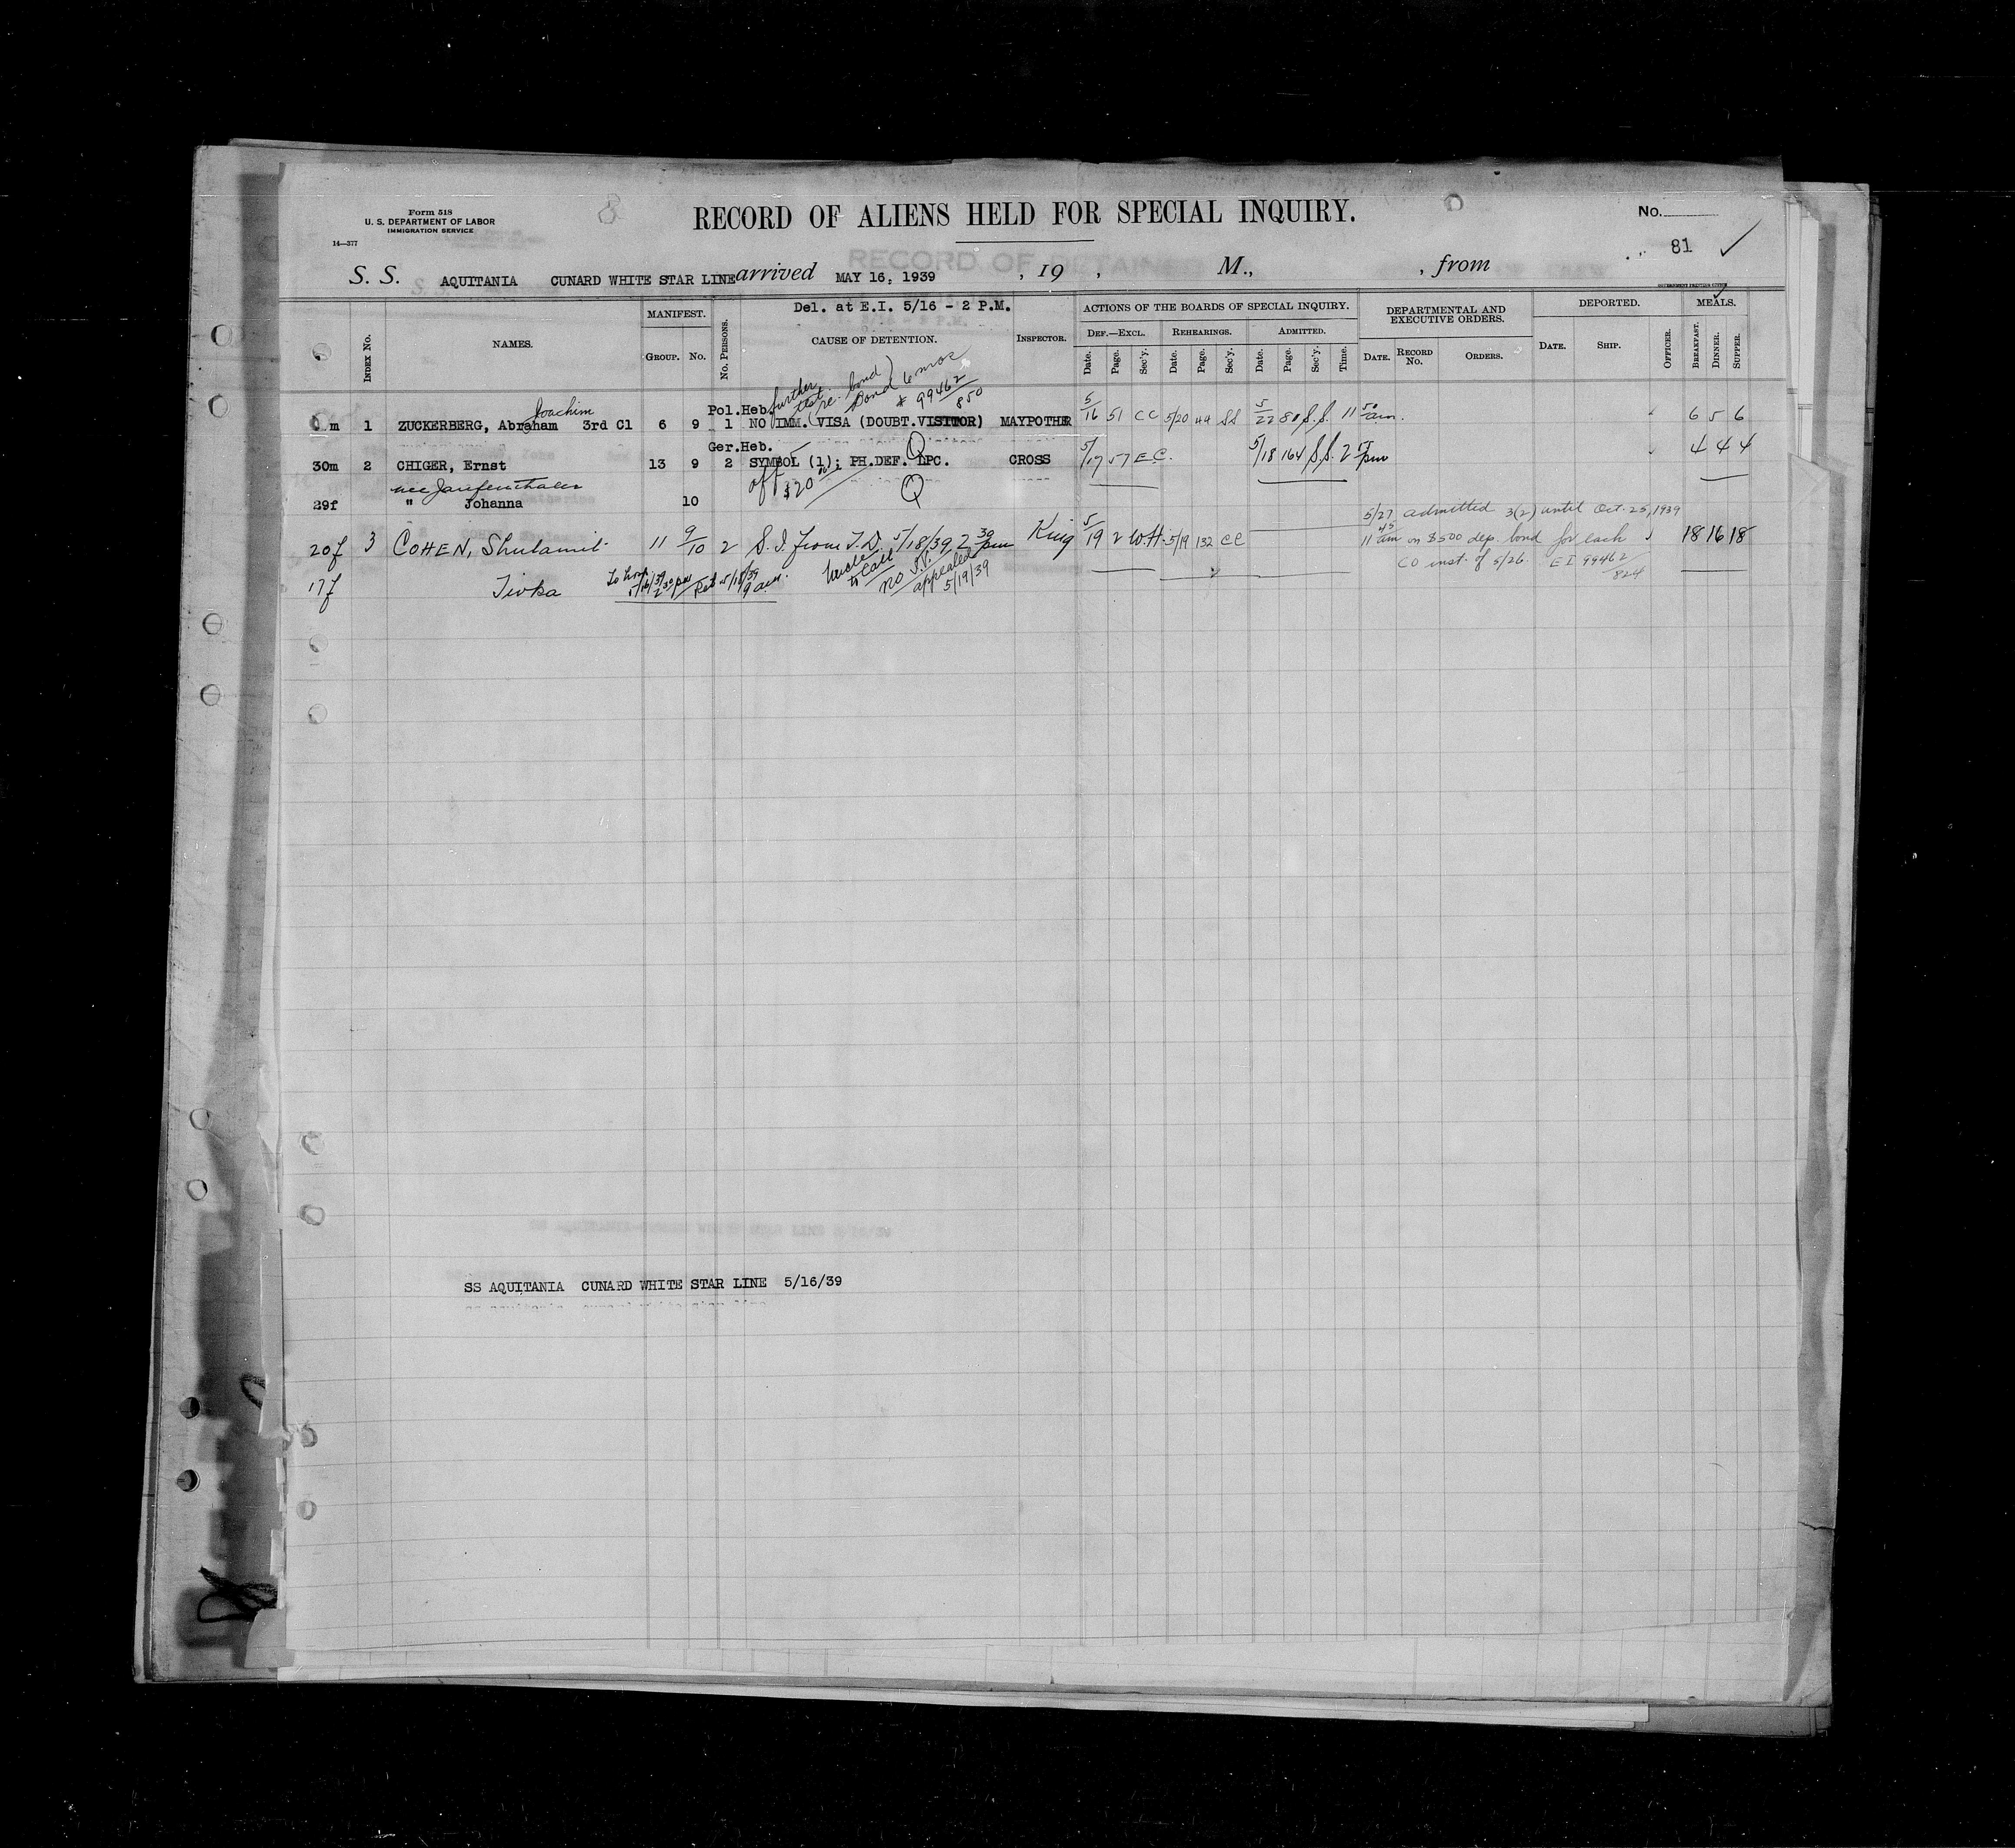 Form 518
U. S. DEPARTMENT OF LABOR
IMMIGRATION SERVICE
14—377
8
RECORD OF ALIENS HELD FOR SPECIAL INQUIRY.
No.
81 ✓
S. S. AQUITANIA CUNARD WHITE STAR LINE arrived MAY 16, 1939 , 19 , M., , from
GOVERNMENT PRINTING OFFICE
Del. at E.I. 5/16 - 2 P.M.
INDEX No. NAMES. MANIFEST. GROUP. No. No. PERSONS. CAUSE OF DETENTION. INSPECTOR. ACTIONS OF THE BOARDS OF SPECIAL INQUIRY. DEF.—EXCL. Date. Page. Sec'y. REHEARINGS. Date. Page. Sec'y. ADMITTED. Date. Page. Sec'y. Time. DEPARTMENTAL AND EXECUTIVE ORDERS. DATE. RECORD No. ORDERS. DEPORTED. DATE. SHIP. OFFICER. MEALS. BREAKFAST. DINNER. SUPPER.
further test. (re. bond) Bond 6 mos
# 99462/850
Joachim Pol.Heb.
m 1 ZUCKERBERG, Abraham 3rd Cl 6 9 1 NO IMM. VISA (DOUBT.VISITOR) MAYPOTHER 5/16 51 CC 5/20 44 SS 5/22 80 S.S. 11 50 am. 6 5 6
Ger.Heb.
30m 2 CHIGER, Ernst 13 9 2 SYMBOL (1); PH.DEF. LPC. CROSS 5/17 57 E.C. 5/18 164 S.S. 2 pm 4 4 4
nee
off $20 Q
29f " Johanna 10
5/27 admitted 3(2) until Oct. 25, 1939
20f 3 COHEN, Shulamit 11 9/10 2 S.I. from T.D. 5/18/39, 2 30 pm King 5/19 2 W.H. 5/19 132 CC 11 45 am on $500 dep. bond for each 18 16 18
CO inst. of 5/26. EI 99462/824
17f Tivka To hosp 5/16/39 2 30 pm Ret 5/18/39 9 am. Uncle to call no S.P. appealed 5/19/39
SS AQUITANIA CUNARD WHITE STAR LINE 5/16/39